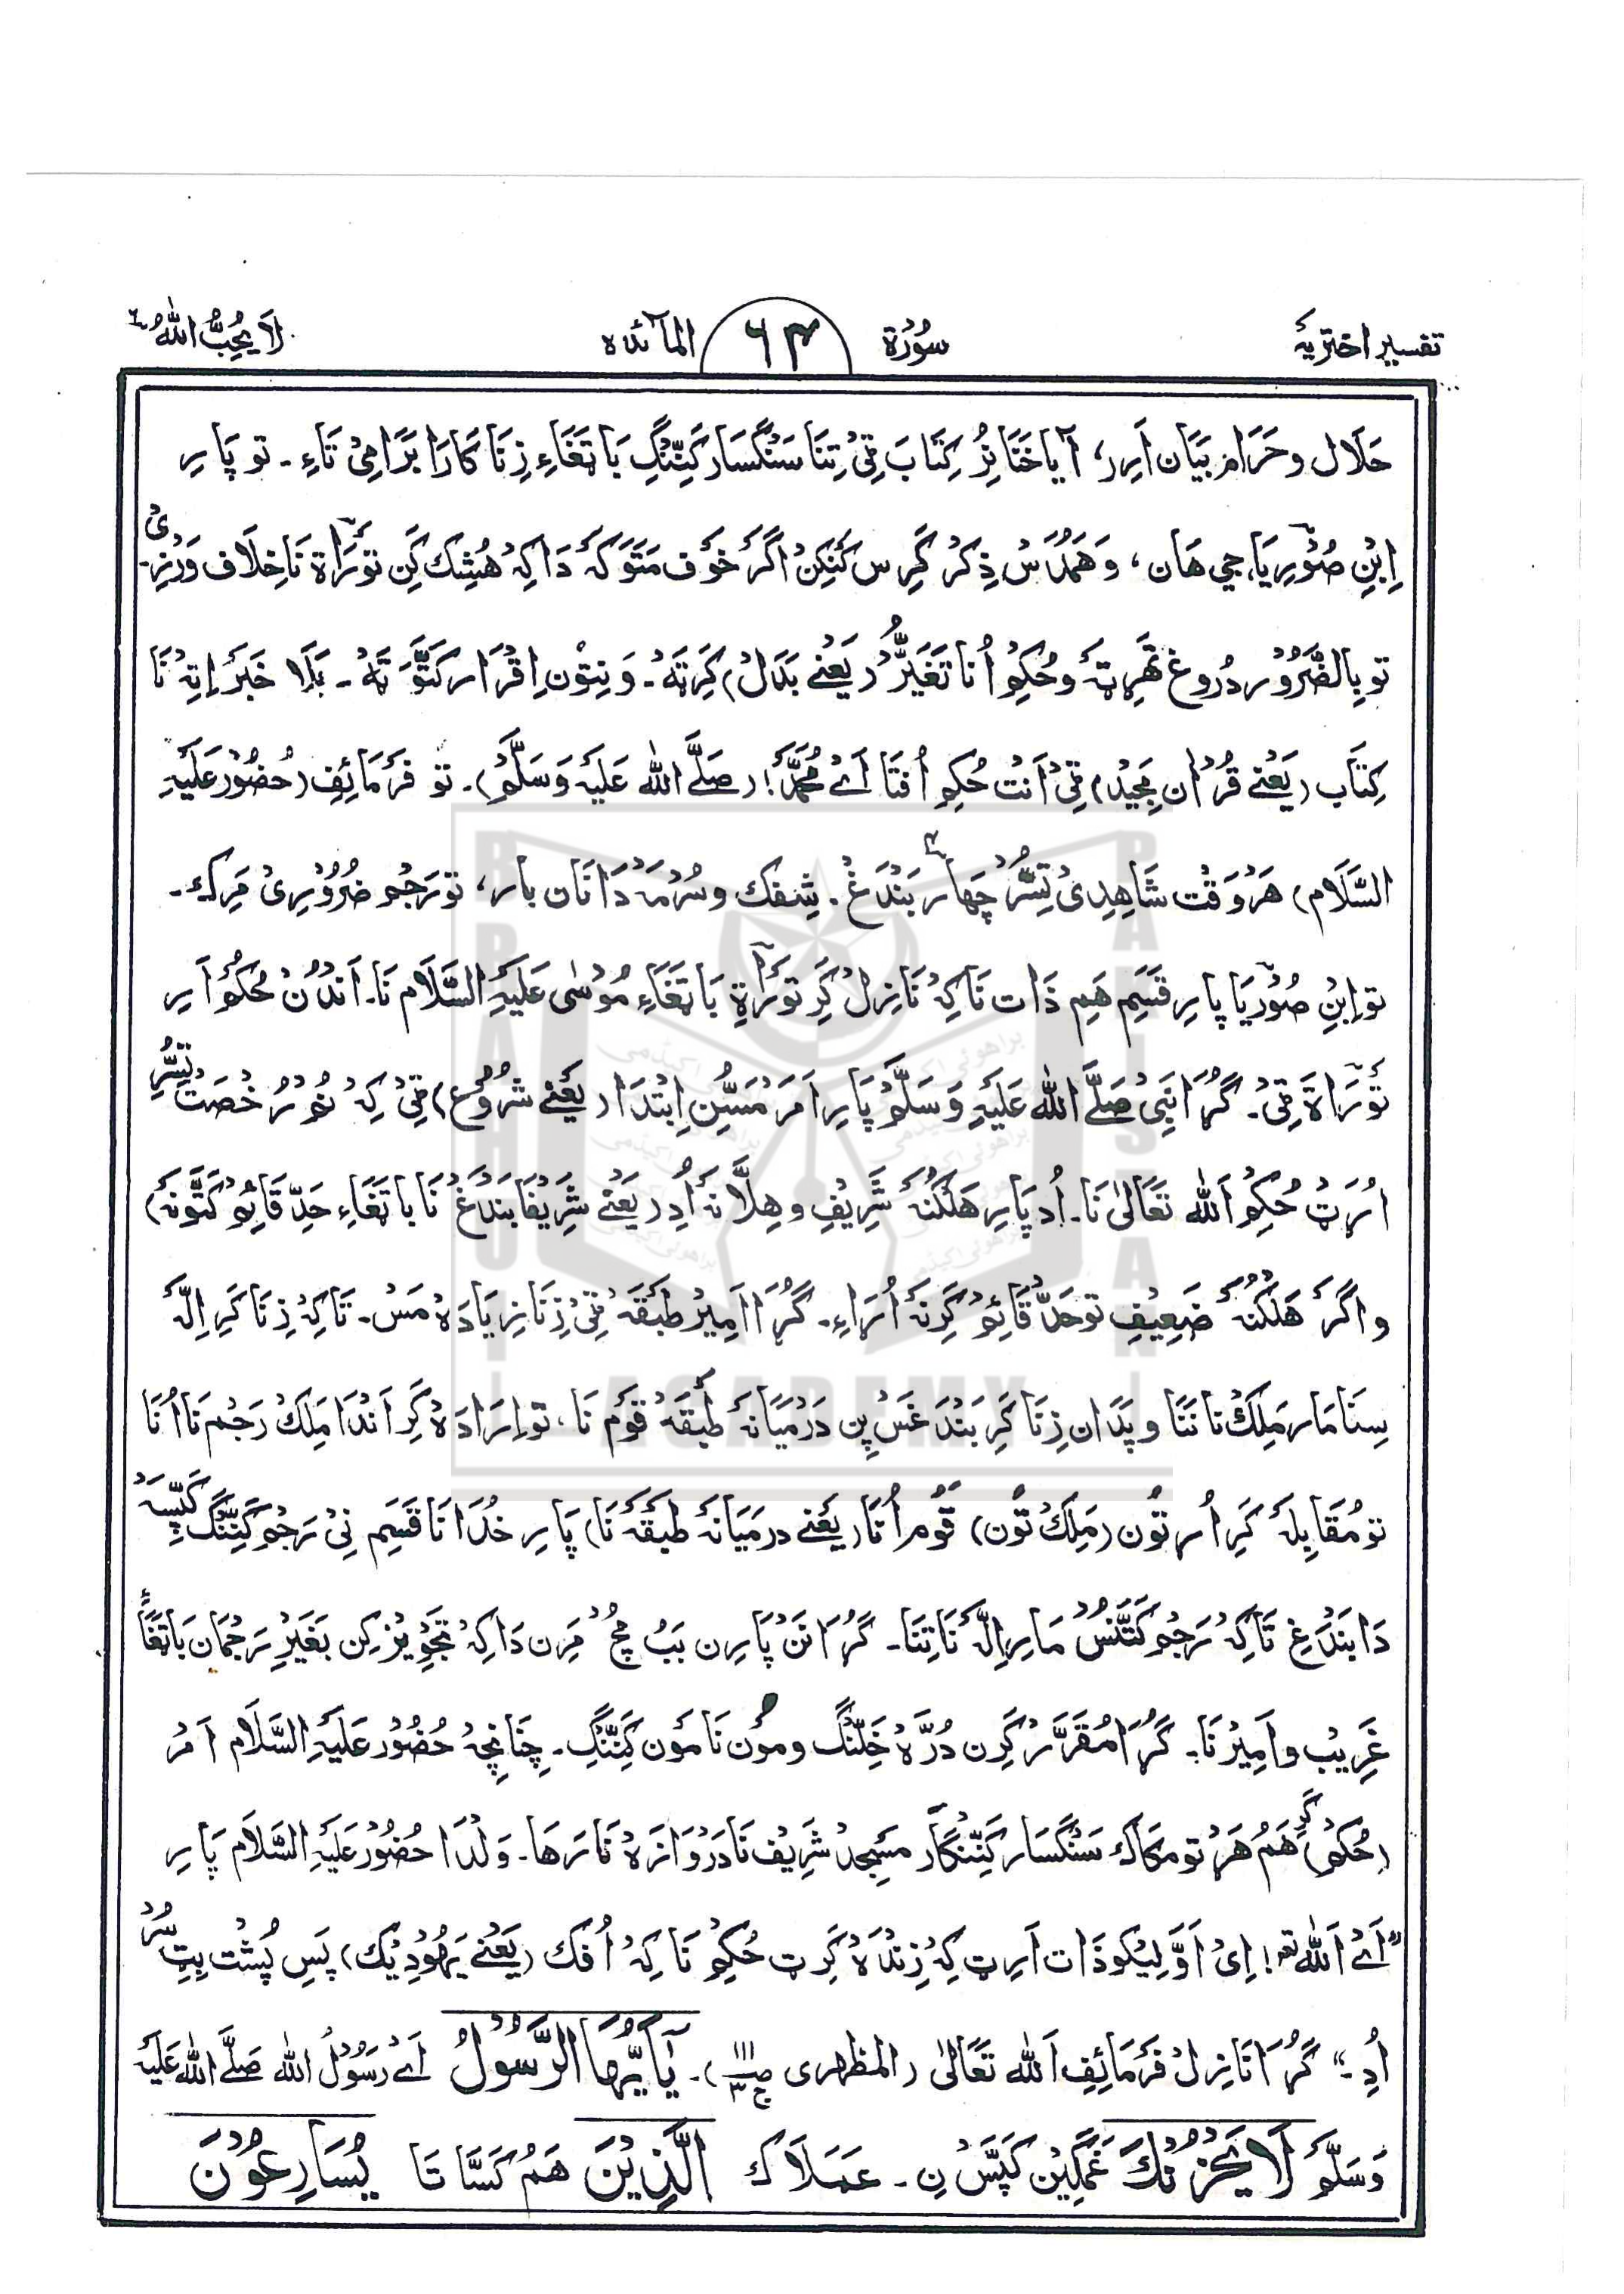 تفسیر اختریہٴ سُوْرَۃ ۶۳ المآئدہ لَا یُحِبُّ اللّٰهُ ٦
حَلَال و حَرَام بَیَان اَرِر، آیا خَنَا نُرُ کِتَابَ ٹِیْ تِنَا سَنْگسَار کَنِّنْگِ بَا تَغَاءِ زِنَا کَارَا بَرَامِیْ تَاءِ ۔ تو پَارِ
اِبْنِ صُوْرِیَا، جی هَان، وَ هَمْدُسْ ذِکْر کَرِس کَنِکِنْ اَگَرْ خَوْف مَتَوَکَہ دَاکِہْ هُشِک کِن تَوْرَاۃ نَا خِلَاف وَرْزِیْ۔
تو بِالضَّرُوْر دُروغ تَهْرِتہٴ و حُکِمِ اُنَا تَغَیُّرْ (یَعْنے بَدَلْ) کَرِتَہْ۔ وَ نِتْوْن اِقْرَار کَتَّوَ تَہْ۔ بَلَا خَبَرْ اِتِہْ نَا
کِتَاب (یَعْنے قُرْاٰن مَجِیْد) ٹِیْ اَنْت حُکِمِ اُفتَا اَےْ مُحَمَّدْ! (صَلَّے اللّٰه عَلَیْہِ وَسَلَّمْ)۔ تو فَرْمَائِف (حُضُوْر عَلَیْہِ
السَّلَام) هَرْوَقْت شَاهِدِیْ تِسُّرْ چَهَار بَنْدَغْ۔ شِفِک و سُرْمَہْ دَانَان بار، تو رَجْم ضُرُوْرِیْ مَرِک۔
تو اِبْنِ صُوْرِیَا پارِ قَسَم هَمِ ذَات نَا کِہْ نَازِلْ کَرِ تَوْرَاۃِ بَا تَغَاءِ مُوْسٰی عَلَیْہِ السَّلَام نَا۔ اَنْدُنْ حُکِم اَرِ
تَوْرَاۃَ ٹِیْ۔ گُڑَا نَبِیْ صَلَّے اللّٰه عَلَیْہِ وَسَلَّمْ پَارِ اَمَرْ مَسُّنْ اِبْتِدَا (یَعْنے شُرُوْع) ٹِیْ کِہْ نُمْ رُخْصَتْ تِسُّرِ
اُرَتْ حُکِمِ اَللّٰه تَعَالٰی نَا۔ اُد پَارِ هَلْکُنَہْ شَرِیْفِ و هِلَّانَہْ اُدِ (یَعْنے شَرِیْفَا بَنْدَغْ نَا بَا تَغَاءِ حَدِّ قَائِمْ کَتَّوْنَہْ)
و اَگَرْ هَلْکُنَہْ ضَعِیْفِ تو حَدّ قَائِمْ کَرِنَہْ اُرَاءِ۔ گُڑَا اَمِیْر طَبْقَہْ ٹِیْ زِنَا زِیَادَہْ مَسْ۔ تَاکِہْ زِنَا کَرِ اِلَّہ
سِنَا مَار مَلِکْ نَا نَنَا و پَدَان زِنَا کَرِ بَنْدَغَسْ پِن دَرْمِیَانَہ طَبْقَہْ قَوْم نَا، تو اِرَادَہْ کَرِ اَنْدَا مَلِکْ رَجْم نَا اُنَا
تو مُقَابِلَہ کَرِ اُر تُون (مَلِکْ تُون) قَوْم اُنَا (یَعْنے درمَیَانَہ طَبْقَہْ نَا) پَارِ خُدَا نَا قَسَم نِیْ رَجْم کَنِّنْگ کَپِّسَہْ
دَا بَنْدَغِ تَاکِہْ رَجْم کَتَّنُسْ مَارِ اِلَّہ نَا تِنَا۔ گُڑَا نَن پَارِن بَبْ مُچْ مَرِن دَاکِہْ تَجْوِیْز کِن بَغَیْرِ رَجْمَان بَا تَغَاءً
غَرِیْب و اَمِیْرْ نَا۔ گُڑَا مُقَرَّر کَرِن دُرَّہْ خَلِّنْگ و مُوْن نَا مَوْن کَنِّنْگِ۔ چِنَانچِہْ حُضُوْر عَلَیْہِ السَّلَام اَمْر
(حُکَمْ) کَرِ هَمْ هَرْتومَکَاک سَنْگسَار کَنِّنْگَار مَسْجِد شَرِیْف نَا دَرْوَازَہْ نَا رَهَا۔ وَلْدَا حُضُوْر عَلَیْہِ السَّلَام پَارِ
”اَےْ اَللّٰه تعہ! اِیْ اَوَّلِیْکو ذَات اَرِتْ کِہْ زِنْدَہْ کَرِتْ حُکِمِ نَا کِہْ اُفک (یَعْنے یَهُوْدِیْک) پَسِ پُشْت بِتِسُّرْ
اُدِ۔“ گُڑَا نَازِلْ فَرْمَائِفِ اَللّٰه تَعَالٰی (المظهری ص۱۱۱ ج۳)۔ یٰۤاَیُّهَا الرَّسُوْلُ اَےْ رَسُوْلُ اللّٰه صَلَّے اللّٰه عَلَیْہِ
وَسَلَّمْ لَا یَحْزُنْكَ غَمْگِیْن کَپَّسْ نِ۔ عَمَلَاک الَّذِیْنَ هَمْ کَسَّا تَا یُسَارِعُوْنَ